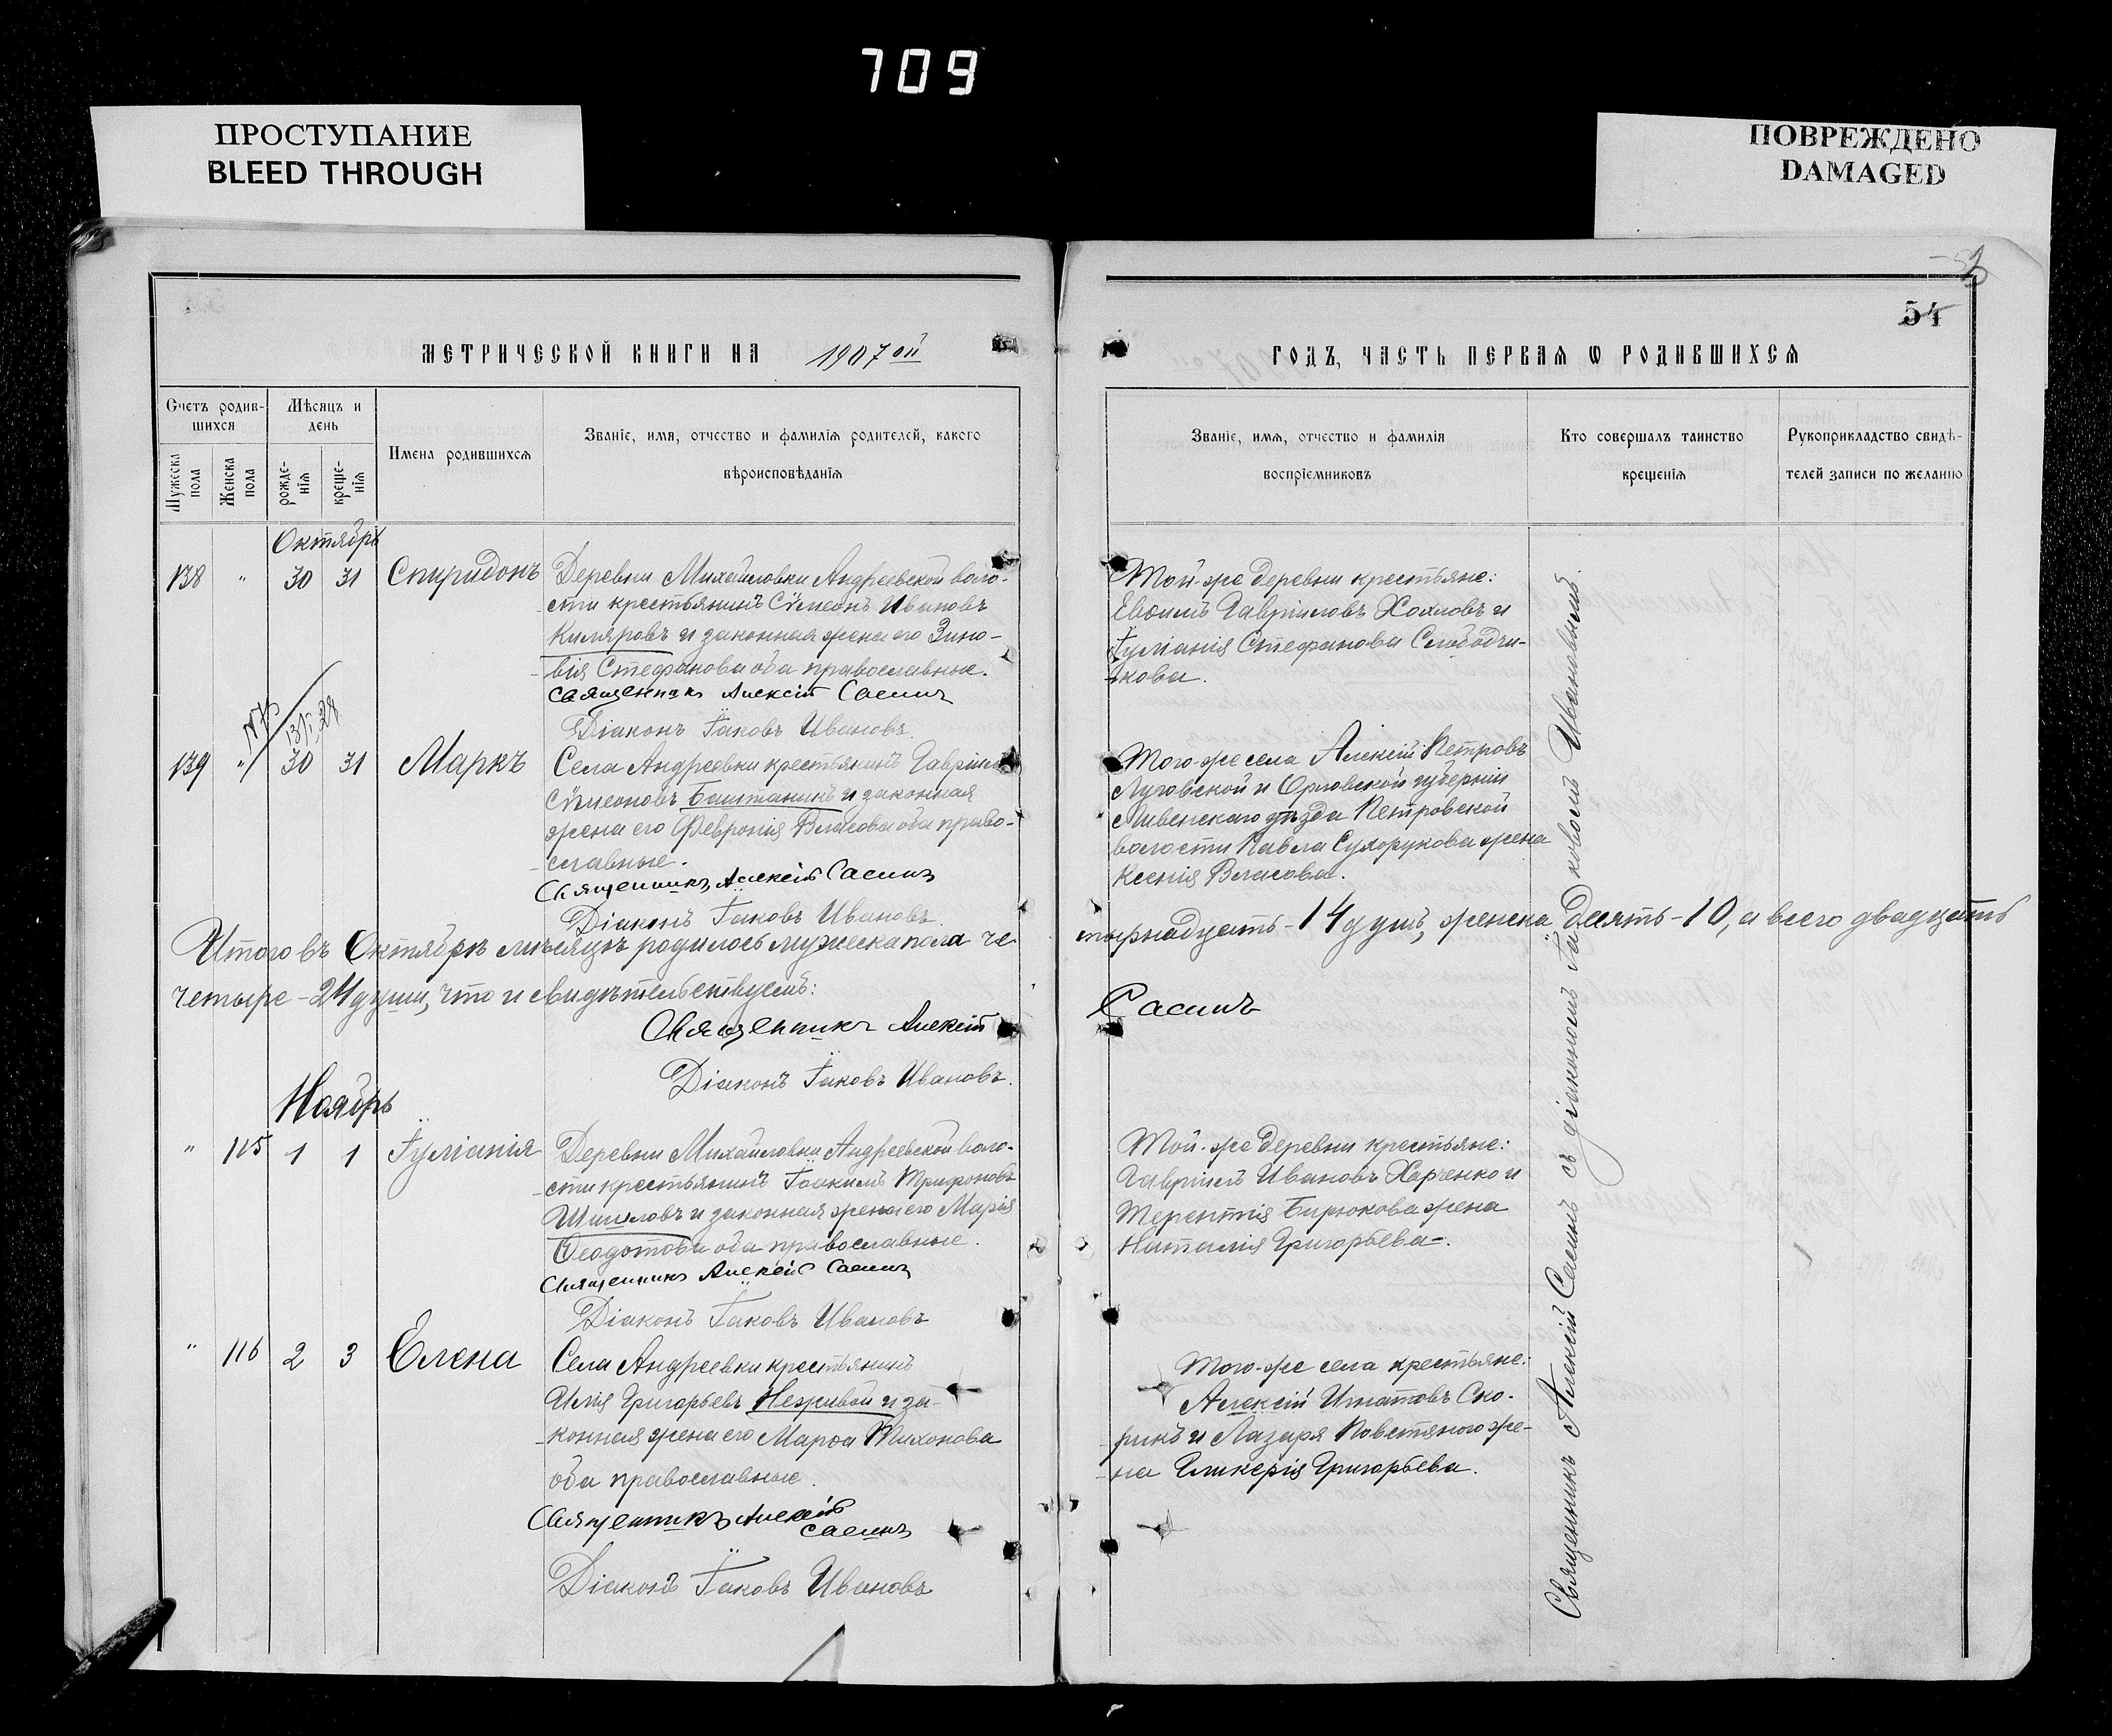 709
ПРОСТУПАНИЕ
BLEED THROUGH
ПОВРЕЖДЕНО
DAMAGED
54
МЕТРИЧЕСКОЙ КНИГИ НА 1907 ой
Счетъ родив-
шихся
Мѣсяцъ и
день
Мужеска пола
Женска пола
рожде-
нія
креще-
нія
Имена родившихся
Званіе, имя, отчество и фамилія родителей, какого
вѣроисповѣданія
Октябрь
138 " 30 31 Спиридонъ
Деревни Михайловки Андреевской воло-
сти крестьянинъ Сѵмеонъ Ивановъ
Киляровъ и законная жена его Зино-
вія Стефанова оба православные.
Священникъ Алексій Саеинъ
Діаконъ Іаковъ Ивановъ.
139 " 30 31 Маркъ
Села Андреевки крестьянинъ Гавріилъ
Сѵмеоновъ Баштанинъ и законная
жена его Февронія Власова оба право-
славные.
Священникъ Алексій Саеинъ
Діаконъ Іаковъ Ивановъ.
Итого въ Октябрѣ мѣсяцѣ родилось мужеска пола че-
четыре - 24 души, что и свидѣтельствуемъ:
Священникъ Алексій
Діаконъ Іаковъ Ивановъ.
Ноябрь
" 115 1 1 Іуліанія
Деревни Михайловки Андреевской воло-
сти крестьянинъ Іоакимъ Трифоновъ
Шиловъ и законная жена его Марія
Ѳеодотова оба православные.
Священникъ Алексій Саеинъ
Діаконъ Іаковъ Ивановъ
" 116 2 3 Елена
Села Андреевки крестьянинъ
Илія Григорьевъ Неживой и за-
конная жена его Марѳа Тихонова
оба православные.
Священникъ Алексій
Саеинъ
Діаконъ Іаковъ Ивановъ
ГОДЪ, ЧАСТЬ ПЕРВАЯ Ѡ РОДИВШИХСЯ
Званіе, имя, отчество и фамилія
воспріемниковъ
Кто совершалъ таинство
крещенія
Рукоприкладство свидѣ-
телей записи по желанію
Той-же деревни крестьяне:
Евѳимъ Гавріиловъ Хохловъ и
Іуліанія Стефанова Слободчи-
кова.
Того-же села Алексій Петровъ
Луговской и Орловской губерніи
Ливенскаго уѣзда Петровской
волости Павла Сухорукова жена
Ксенія Власова.
тырнадцать - 14 душъ, женска десять - 10, а всего двадцать
Саеинъ
Той-же деревни крестьяне:
Гавріилъ Ивановъ Харченко и
Терентія Бирюкова жена
Наталія Григорьева.
Того-же села крестьяне:
Алексій Игнатовъ Ско-
рикъ и Лазаря Повстяного же-
на Гликерія Григорьева.
Священникъ Алексій Саеинъ съ діакономъ Іаковомъ Ивановымъ